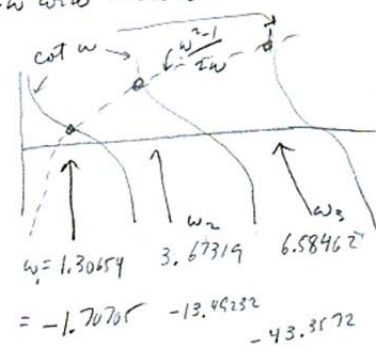 cot w
w²-1
2w
w₂
w₃
w₁ = 1.30654 3.67319 6.58462
= -1.70705 -13.49232 -43.3572